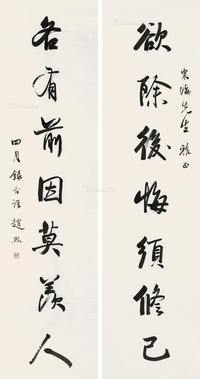 海先生 雅正
欲除後悔須修己
各有前因莫羨人
四月録古語 趙熙